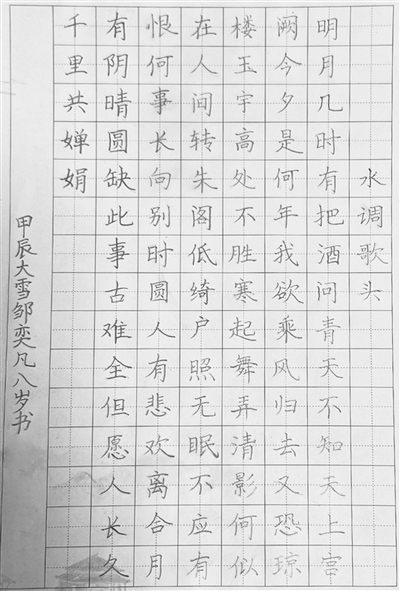 水调歌头
明月几时有把酒问青天不知天上宫
阙今夕是何年我欲乘风归去又恐琼
楼玉宇高处不胜寒起舞弄清影何似
在人间转朱阁低绮户照无眠不应有
恨何事长向别时圆人有悲欢离合月
有阴晴圆缺此事古难全但愿人长久
千里共婵娟
甲辰大雪邹奕凡八岁书